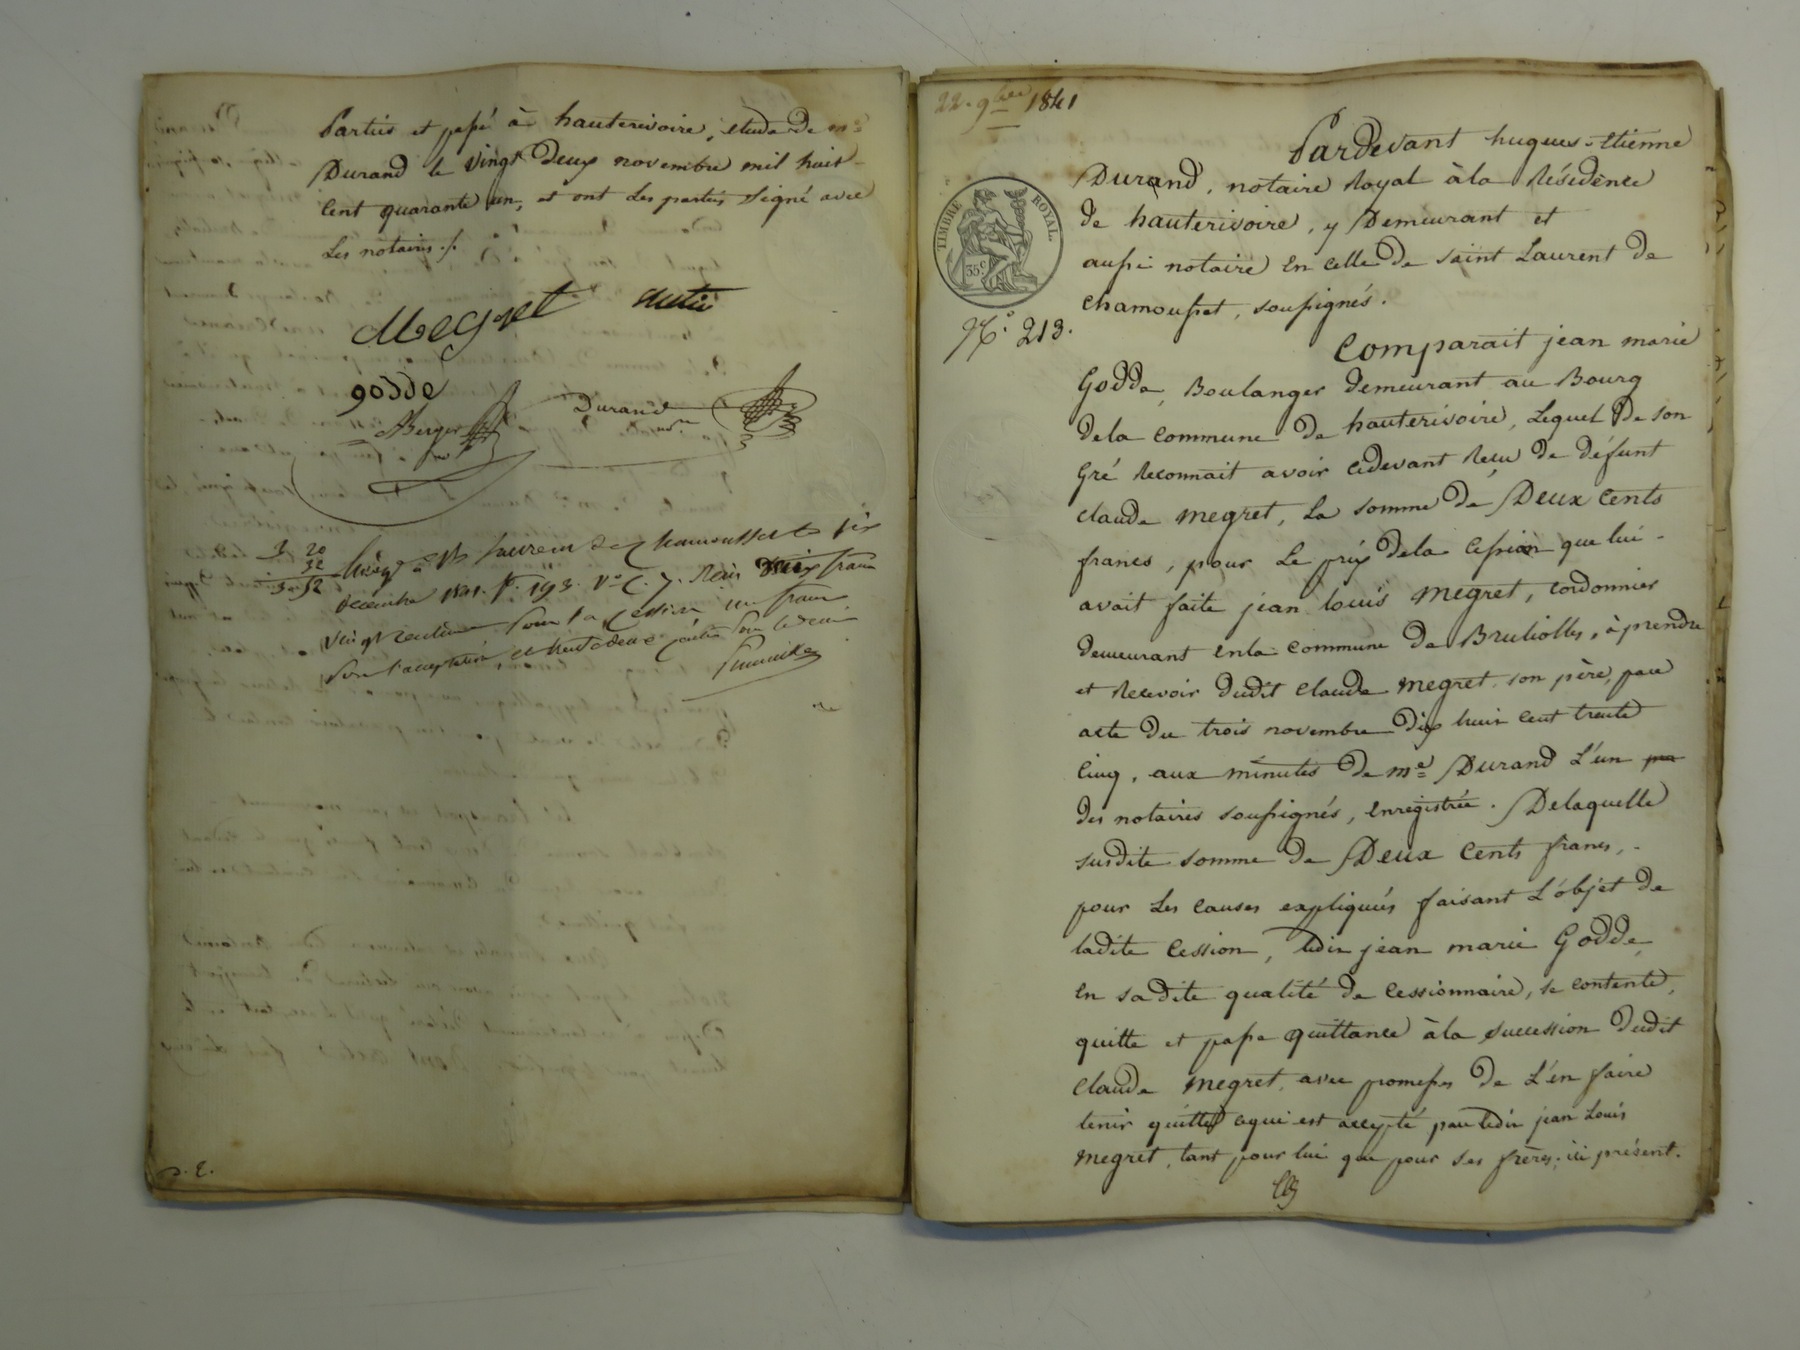 Parties et passé à hauterivoire, étude de me
Durand le vingt deux novembre mil huit
cent quarante un, et ont les parties signé avec
les notaires ./.
Megret
godde
Berger
Durand
3 20
32
3 52
St Laurent de Chamousset le six
décembre 1841. fo. 193. vo C. 7. Reçu francs
vingt centimes pour la cession un franc
pour l'acceptation, et trente deux centes pour le décime
22. 9bre 1841
TIMBRE ROYAL.
35c
No. 213.
Pardevant hugues-Etienne
Durand, notaire Royal à la Résidence
de hauterivoire, y Demeurant et
aussi notaire en celle de saint Laurent de
chamousset, soussignés.
Comparait jean marie
Godde, Boulanger demeurant au Bourg
dela commune de hauterivoire, Lequel de son
Gré Reconnait avoir cidevant Reçu de défunt
claude megret, La somme de Deux cents
francs, pour Le prix dela cession que lui
avait faite jean louis megret, cordonnier
demeurant enla commune de Brullioles, à prendre
et Recevoir dudit claude megret son père, par
acte du trois novembre dix huit cent trente
cinq, aux minutes de me Durand L'un
des notaires soussignés, enregistrée. Delaquelle
susdite somme de Deux cents francs,
pour les causes expliquées faisant L'objet de
ladite cession, ledit jean marie Godde,
en sa dite qualité de cessionnaire, se contente,
quitte et passe quittance àla succession dudit
claude megret, avec promesse de L'en faire
tenir quitte cequi est accepté par ledit jean Louis
megret, tant pour lui que pour ses frères, ici présent.